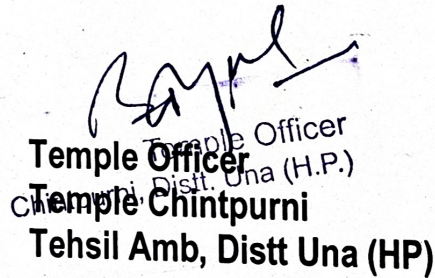 Temple Officer
Chintpurni, Distt. Una (H.P.)
Temple Officer
Temple Chintpurni
Tehsil Amb, Distt Una (HP)